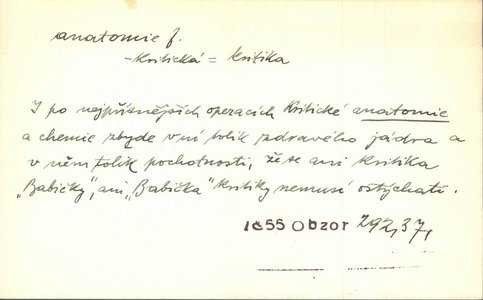 anatomie f.
- kritická = kritika
I po nejpřísnějších operacích kritické anatomie
a chemie zbyde v ní tolik zdravého jádra a
v něm tolik pochotnosti, že se ani kritika
„Babičky", ani „Babička" kritiky nemusí ostýchati.
1855 Obzor 292,37,